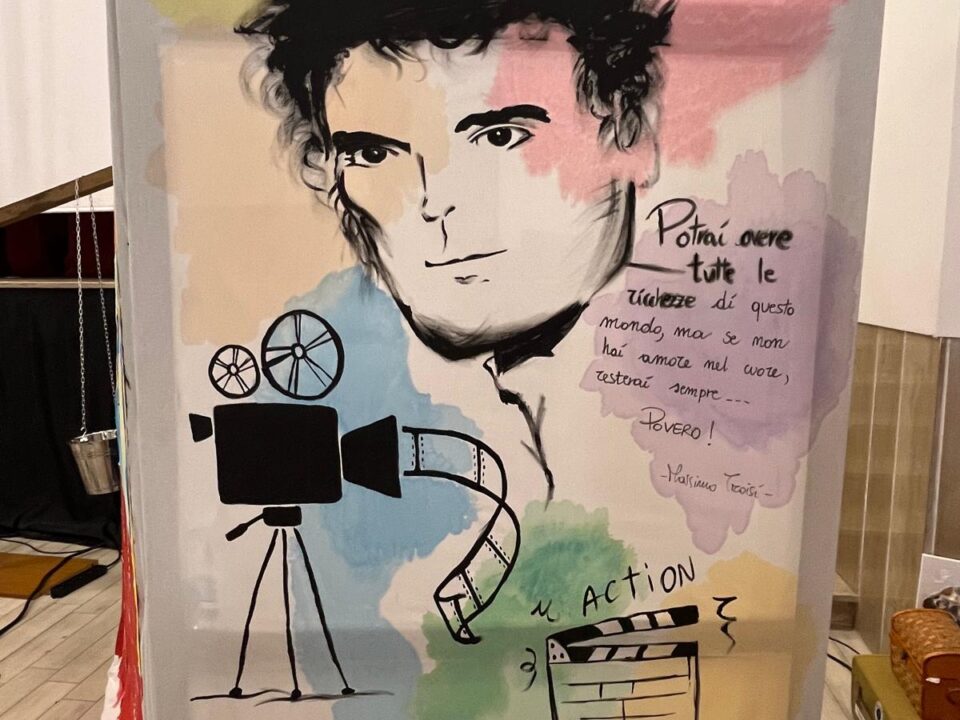 Potrai avere
tutte le
ricchezze di questo
mondo, ma se non
hai amore nel cuore,
resterai sempre ---
POVERO!
-Massimo Troisi-
ACTION